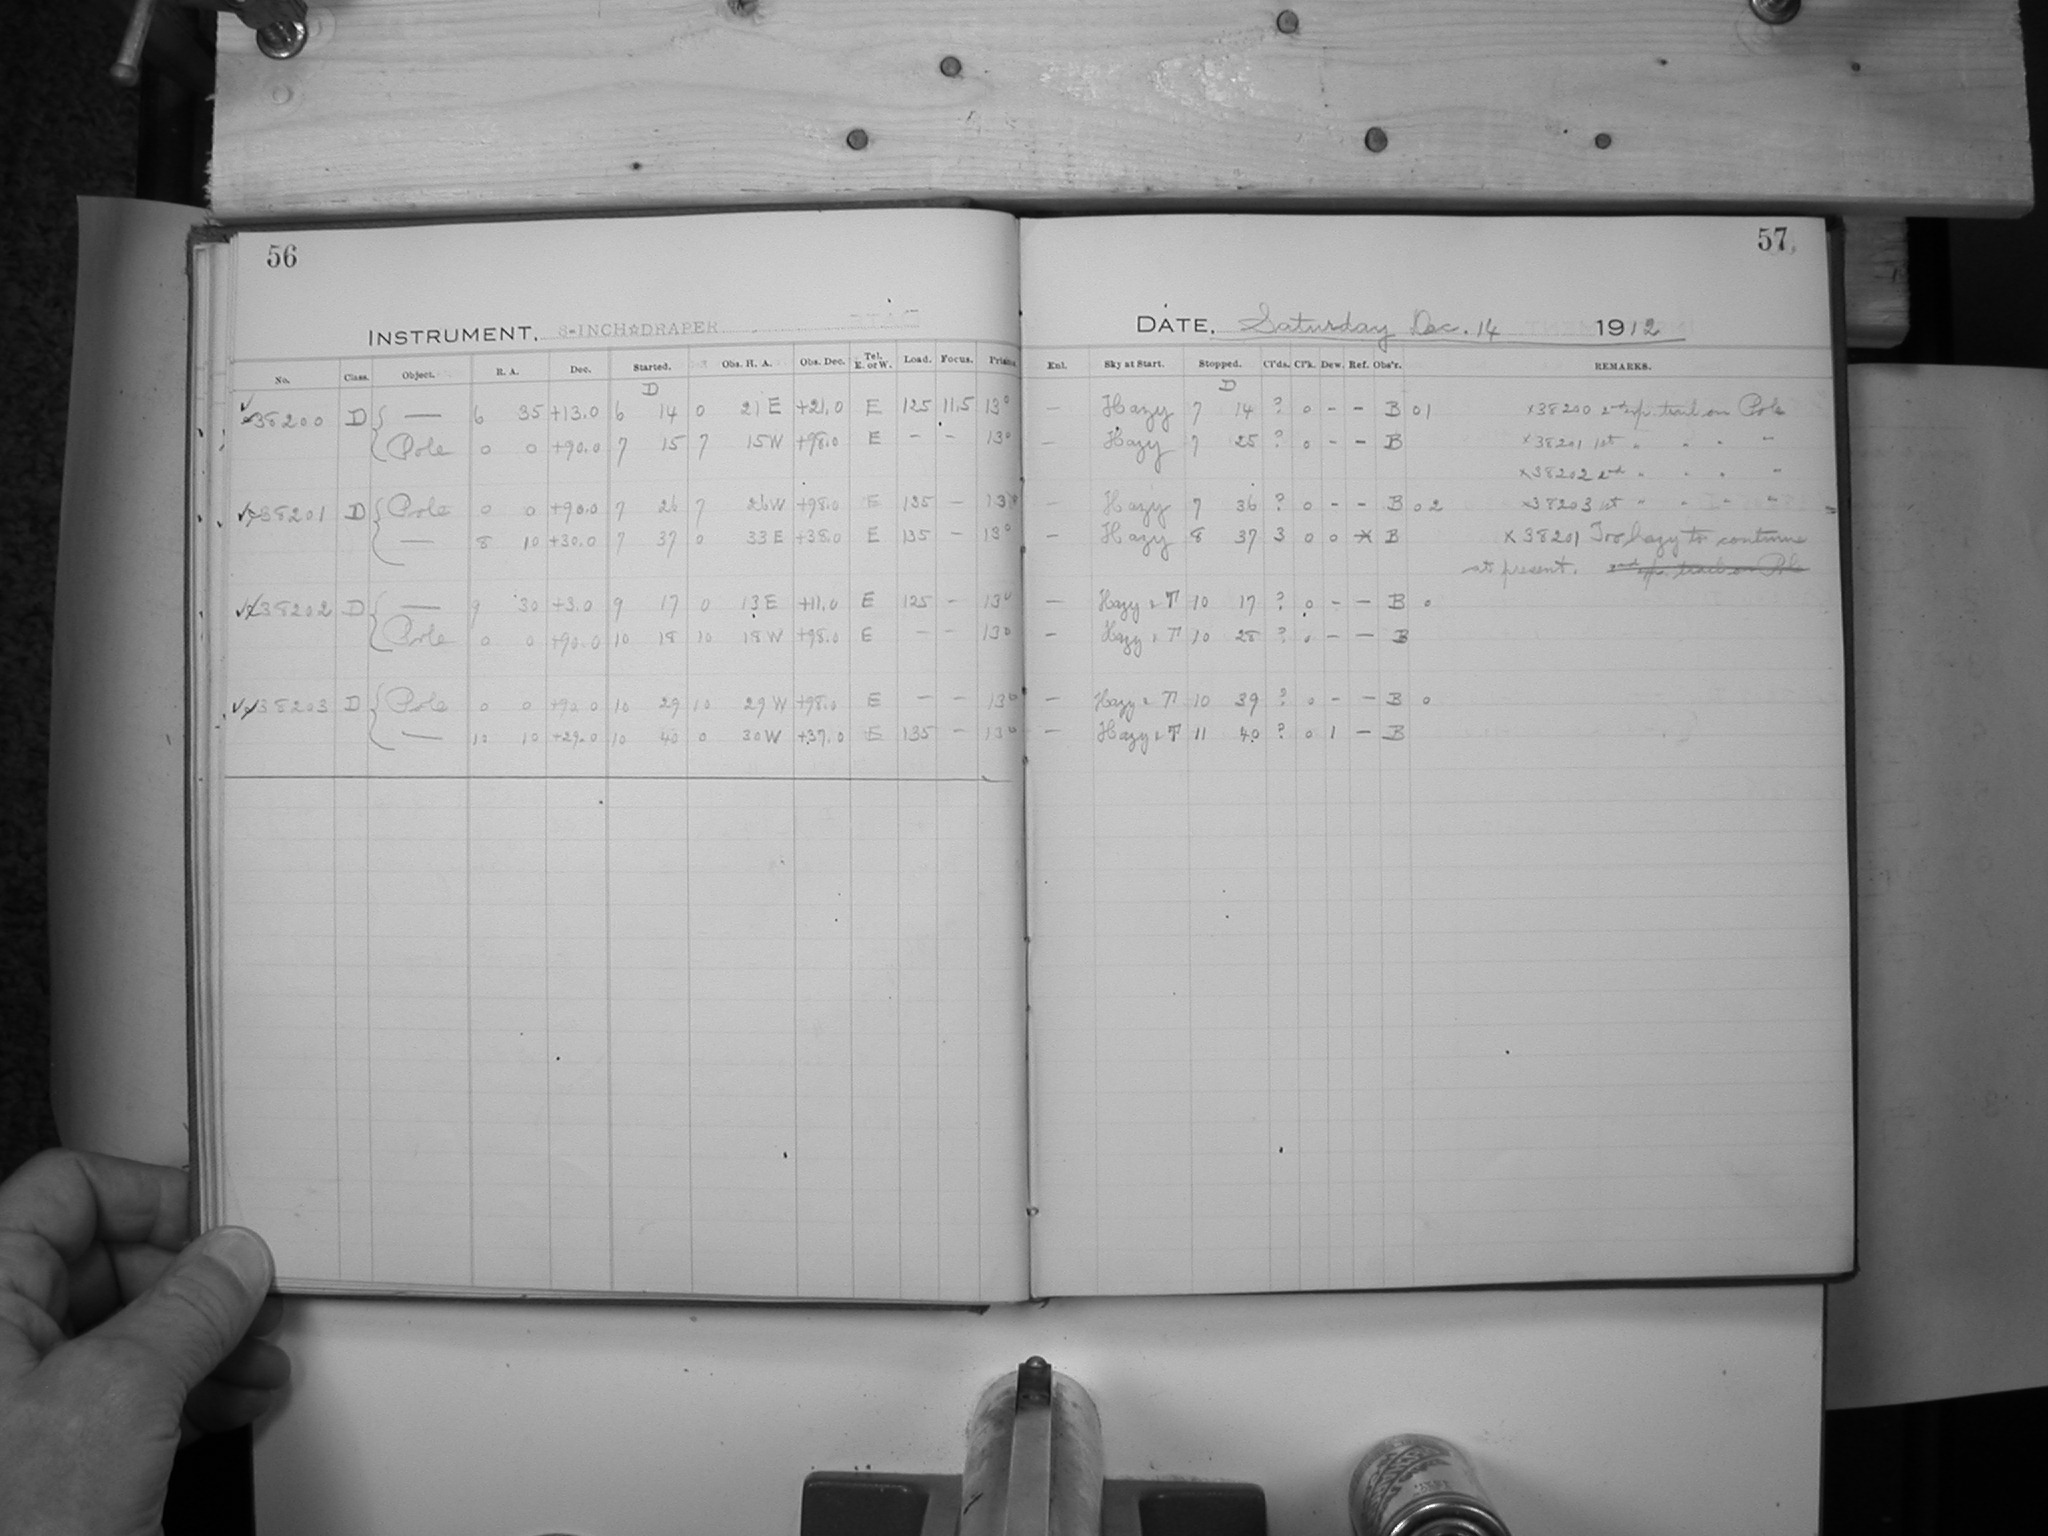 56
INSTRUMENT, 8-INCH DRAPER
No. Class. Object. R. A. Dec. Started. Obs. H. A. Obs. Dec. Tel. E. or W. Load. Focus. Prism.
D
38200 D { — 6 35 +13.0 6 14 0 21 E +21.0 E 125 11.5 13°
Pole 0 0 +90.0 7 15 7 15 W +98.0 E – – 13°
38201 D { Pole 0 0 +90.0 7 26 7 26 W +98.0 E 135 – 13°
— 8 10 +30.0 7 37 0 33 E +38.0 E 135 – 13°
38202 D { — 9 30 +3.0 9 17 0 13 E +11.0 E 125 – 13°
Pole 0 0 +90.0 10 18 10 18 W +98.0 E – – 13°
38203 D { Pole 0 0 +90.0 10 29 10 29 W +98.0 E – – 13°
— 10 10 +29.0 10 40 0 30 W +37.0 E 135 – 13°
57
DATE, Saturday Dec. 14 1912
Enl. Sky at Start. Stopped. Cl'ds. Cl'k. Dew. Ref. Obs'r. REMARKS.
D
— Hazy 7 14 ? 0 – – B 01 x38200 2nd exp. trail on Pole
— Hazy 7 25 ? 0 – – B x38201 1st " " " "
x38202 2nd " " " "
— Hazy 7 36 ? 0 – – B 02 x38203 1st " " " "
— Hazy 8 37 3 0 0 B x38201 Too hazy to continue
at present. 2nd exp. trail on Pole
— Hazy & T 10 17 ? 0 – – B 0
— Hazy & T 10 28 ? 0 – – B
— Hazy & T 10 39 ? 0 – – B 0
— Hazy & T 11 40 ? 0 1 – B